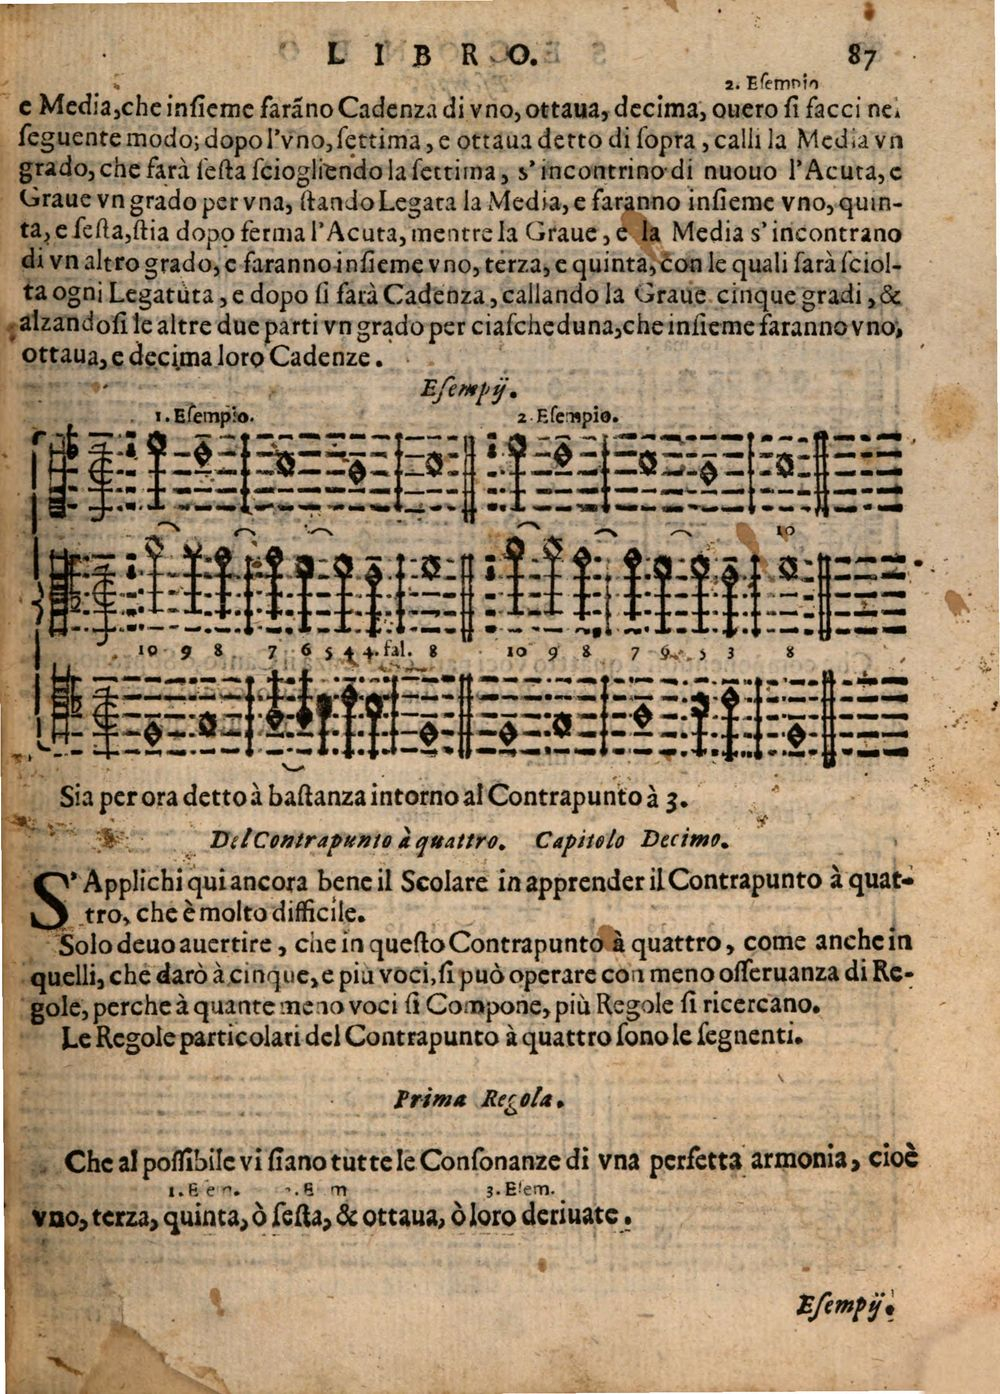 LIBRO. 87
2. Esempio
e Media, che insieme farãno Cadenza di vno, ottaua, decima, ouero si facci nel
seguente modo; dopo l'vno, settima, e ottaua detto di sopra, calli la Media vn
grado, che farà sesta sciogliendo la settima, s'incontrino di nuouo l'Acuta, e
Graue vn grado per vna, stando Legata la Media, e faranno insieme vno, quin-
ta, e sesta, stia dopo ferma l'Acuta, mentre la Graue, e la Media s'incontrano
di vn altro grado, e faranno insieme vno, terza, e quinta, con le quali sarà sciol-
ta ogni Legatùta, e dopo si farà Cadenza, callando la Graue cinque gradi, &
alzandosi le altre due parti vn grado per ciascheduna, che insieme faranno vno,
ottaua, e decima loro Cadenze.
Esempij.
1. Esempio. 2. Esempio.
10
10 9 8 7 6 5 4 4. fal. 8 10 9 8 7 6 5 3 8
Sia per ora detto à bastanza intorno al Contrapunto à 3.
Del Contrapunto à quattro. Capitolo Decimo.
S'Applichi qui ancora bene il Scolare in apprender il Contrapunto à quat-
tro, che è molto difficile.
Solo deuo auertire, che in questo Contrapunto à quattro, come anche in
quelli, che darò à cinque, e più voci, si può operare con meno osseruanza di Re-
gole, perche à quante meno voci si Compone, più Regole si ricercano.
Le Regole particolari del Contrapunto à quattro sono le segnenti.
Prima Regola.
Che al possibile vi siano tutte le Consonanze di vna perfetta armonia, cioè
3. Esem.
vno, terza, quinta, ò sesta, & ottaua, ò loro deriuate.
Esempij.